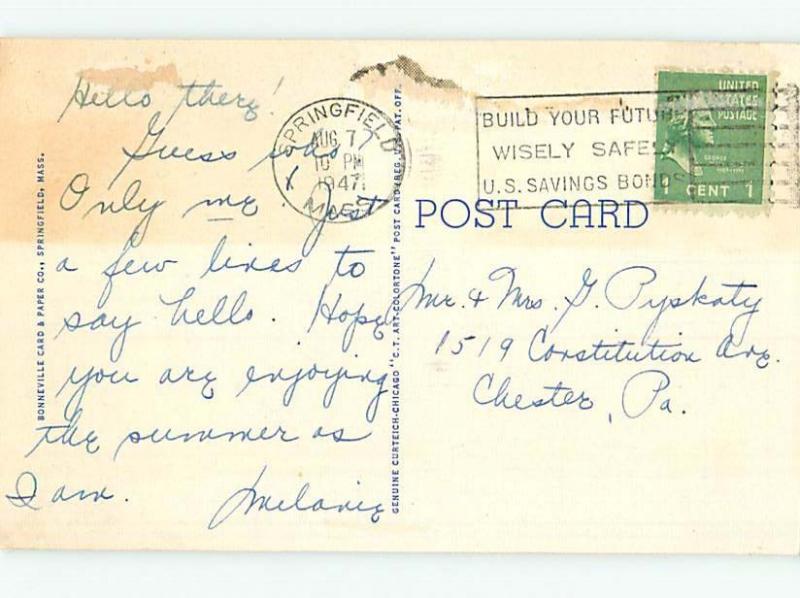 Hello there!
Guess who?
Only me. Just
a few lines to
say hello. Hope
you are enjoying
the summer as
I am. Melanie
BONNEVILLE CARD & PAPER CO., SPRINGFIELD, MASS.
GENUINE CURTEICH-CHICAGO "C.T. ART-COLORTONE" POST CARD (REG. U.S. PAT. OFF.
SPRINGFIELD
AUG 7
10 PM
1947
MASS
BUILD YOUR FUTURE
WISELY SAFELY
U.S. SAVINGS BONDS
UNITED
STATES
POSTAGE
GEORGE
1 CENT 1
POST CARD
Mr. & Mrs. G. Pyskaty
1519 Constitution Ave.
Chester, Pa.